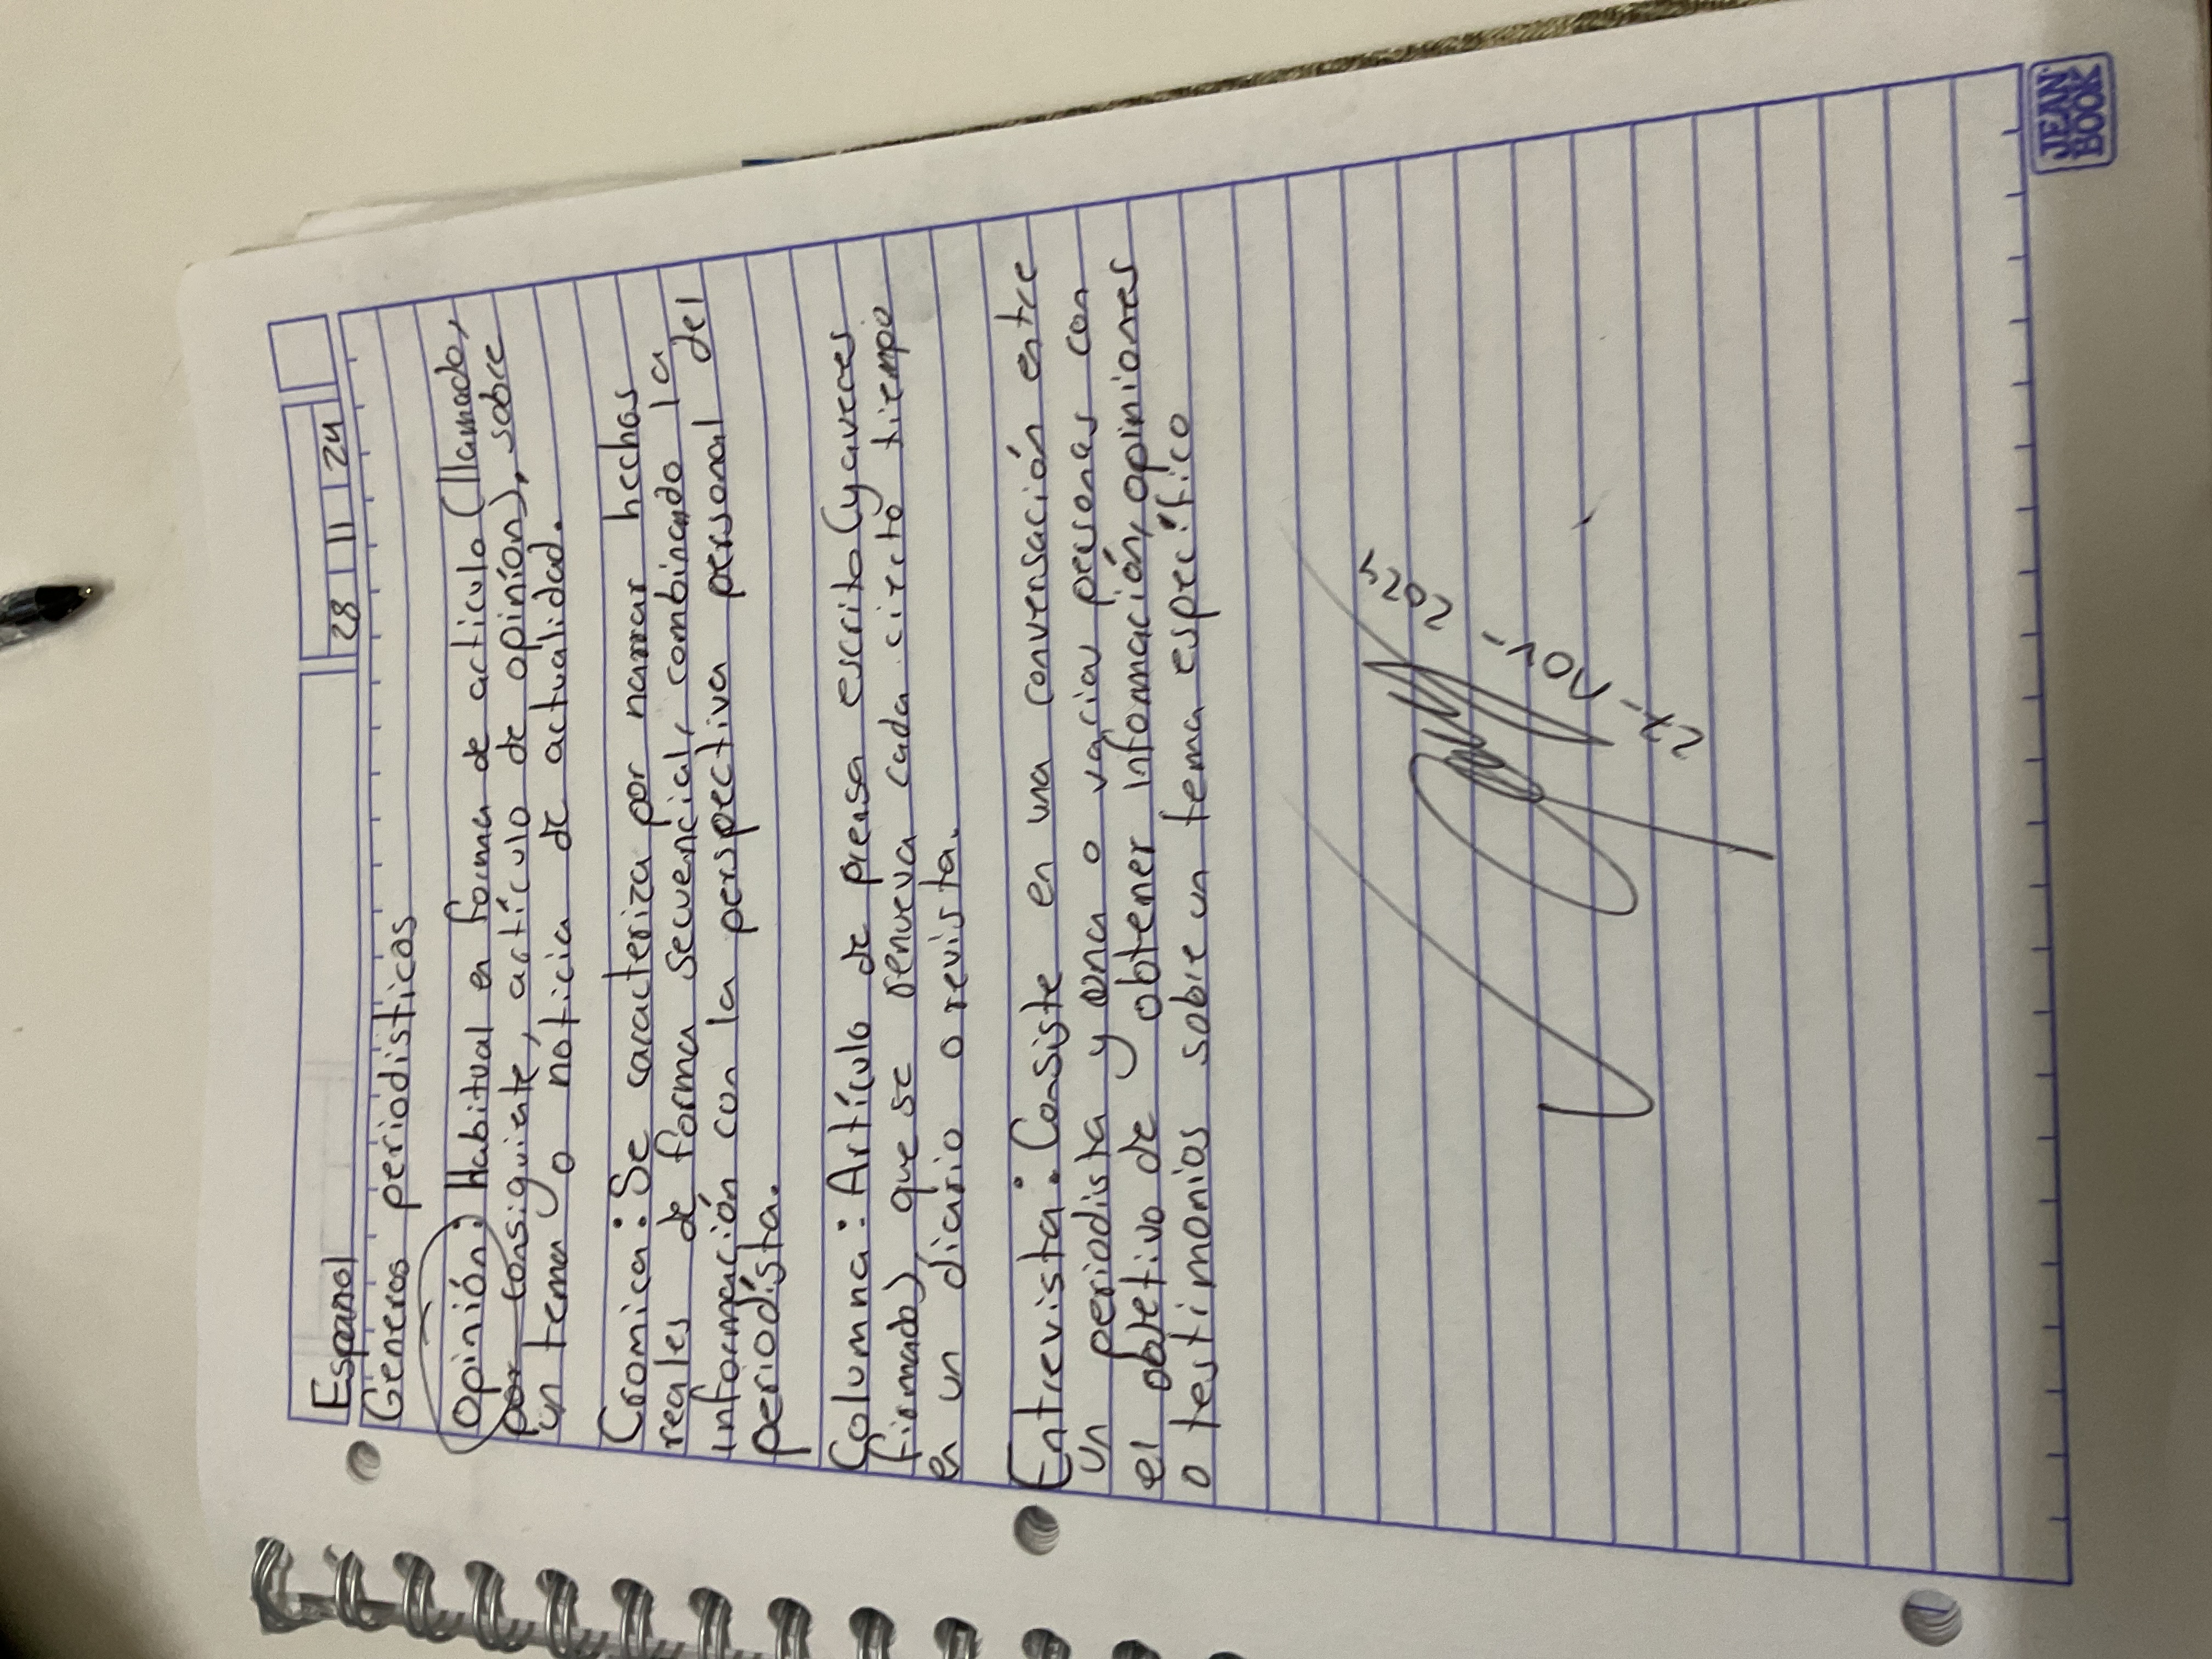 Español
28 11 24
Generos periodisticos
Opinión: Habitual en forma de articulo (llamado,
por consiguiente, artículo de opinión), sobre
un tema o noticia de actualidad.
Cronica: Se caracteriza por narrar hechos
reales de forma secuencial, combinando la
información con la perspectiva personal del
periodísta.
Columna: Artículo de prensa escrito (y aveces
firmado) que se renueva cada cierto tiempo
en un diario o revista.
Entrevista: Consiste en una conversación entre
un periodista y una o varias personas con
el objetivo de obtener información, opiniones
o testimonios sobre un tema específico
- Nov - 2024
JEAN BOOK